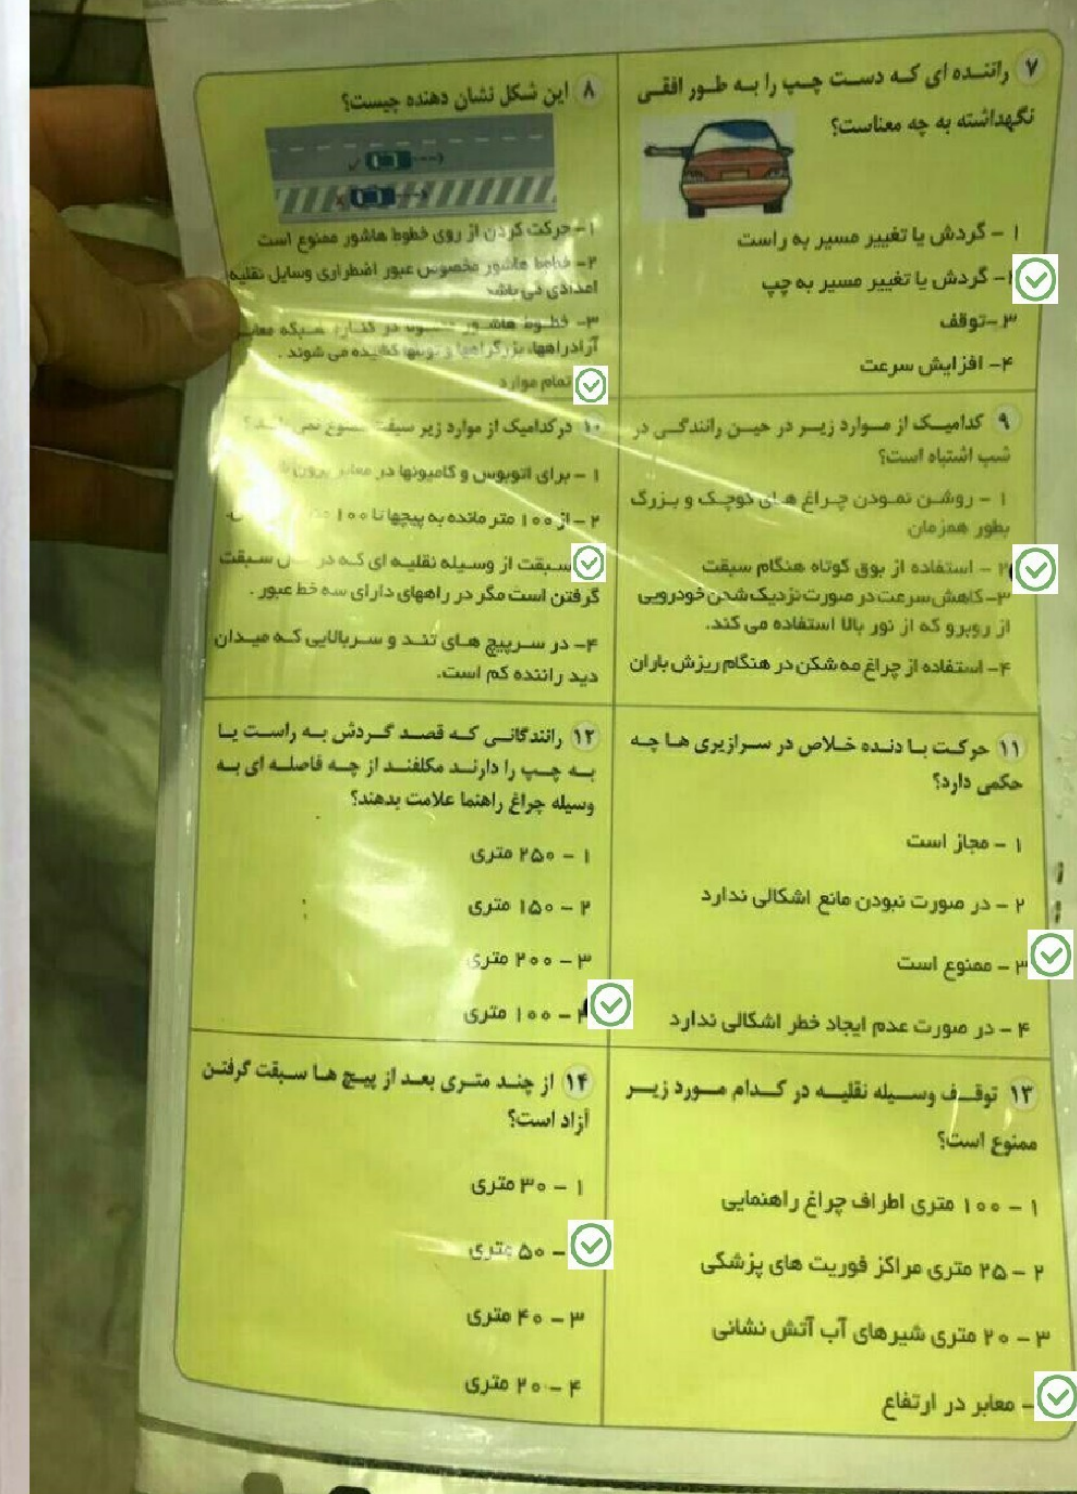 ۷ راننده ای که دست چپ را به طور افقی
نگهداشته به چه معناست؟
۱ - گردش یا تغییر مسیر به راست
- گردش یا تغییر مسیر به چپ
۳-توقف
۴- افزایش سرعت
۸ این شکل نشان دهنده چیست؟
۱- حرکت کردن از روی خطوط هاشور ممنوع است
۲- خطوط هاشور مخصوص عبور اضطراری وسایل نقلیه
امدادی می باشد
۳- خطوط هاشور در کناره شبکه معابر
آزادراهها، بزرگراهها و تونلها کشیده می شوند .
تمام موارد
۹ کدامیک از موارد زیر در حین رانندگی در
شب اشتباه است؟
۱ - روشن نمودن چراغ های کوچک و بزرگ
بطور همزمان
۲ - استفاده از بوق کوتاه هنگام سبقت
۳- کاهش سرعت در صورت نزدیک شدن خودرویی
از روبرو که از نور بالا استفاده می کند.
۴- استفاده از چراغ مه شکن در هنگام ریزش باران
۱۰ در کدامیک از موارد زیر سبقت ممنوع نمی باشد؟
۱ - برای اتوبوس و کامیونها در معابر برون
۲ - از ۱۰۰ متر مانده به پیچها تا ۱۰۰
سبقت از وسیله نقلیه ای که در سبقت
گرفتن است مگر در راههای دارای سه خط عبور .
۴- در سرپیچ های تند و سربالایی که میدان
دید راننده کم است.
۱۱ حرکت با دنده خلاص در سرازیری ها چه
حکمی دارد؟
۱ - مجاز است
۲ - در صورت نبودن مانع اشکالی ندارد
۳ - ممنوع است
۴ - در صورت عدم ایجاد خطر اشکالی ندارد
۱۲ رانندگانی که قصد گردش به راست یا
به چپ را دارند مکلفند از چه فاصله ای به
وسیله چراغ راهنما علامت بدهند؟
۱ - ۲۵۰ متری
۲ - ۱۵۰ متری
۳ - ۲۰۰ متری
۴ - ۱۰۰ متری
۱۳ توقف وسیله نقلیه در کدام مورد زیر
ممنوع است؟
۱ - ۱۰۰ متری اطراف چراغ راهنمایی
۲ - ۲۵ متری مراکز فوریت های پزشکی
۳ - ۲۰ متری شیرهای آب آتش نشانی
- معابر در ارتفاع
۱۴ از چند متری بعد از پیچ ها سبقت گرفتن
آزاد است؟
۱ - ۳۰ متری
- ۵۰ متری
۳ - ۴۰ متری
۴ - ۲۰ متری